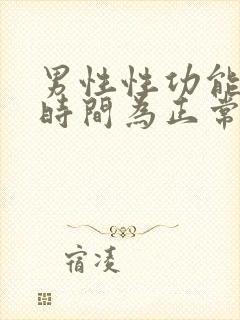 男性性功能
時間為正常
宿凌